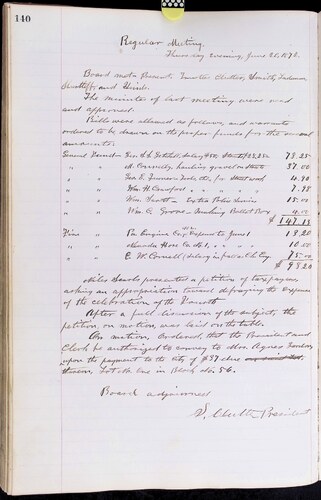 140
Regular Meeting.
Thursday evening, June 20, 1872.
Board met. Present, Trustee Cluttee, Smith,
and
The minutes of last meeting were read
and approved.
Bills were allowed as follows, and warrants
ordered to be drawn on the proper funds for the several
amounts:
General Fund - Geo. 78.25
" " M. Connelly, hauling gravel on streets 37.00
" " Geo. E. 4.90
" " Wm. H. Crawford " " " " 7.98
" " Wm. Scott - Extra Police Service 15.00
" " Wm. C. Grove - Making Ballot Box 4.00
$147.13
Fire " Pa. Engine Co. Expenses to June 1 13.20
" " Alameda Hose Co. No. 1, " " " 10.00
" " E. W. Cornell (Salary in full as Ch. Eng. 75.00
$98.20
Niles Searls presented a petition of taxpayers
asking an appropriation toward defraying the expenses
of the celebration of the Fourth.
After a full discussion of the subject, the
petition, on motion, was laid on the table.
On motion, Ordered, that the President and
Clerk be authorized to convey to Mrs. Agnes
upon the payment to the City of $37 due
thereon, Lot No. One in Block No. 56.
Board adjourned
President